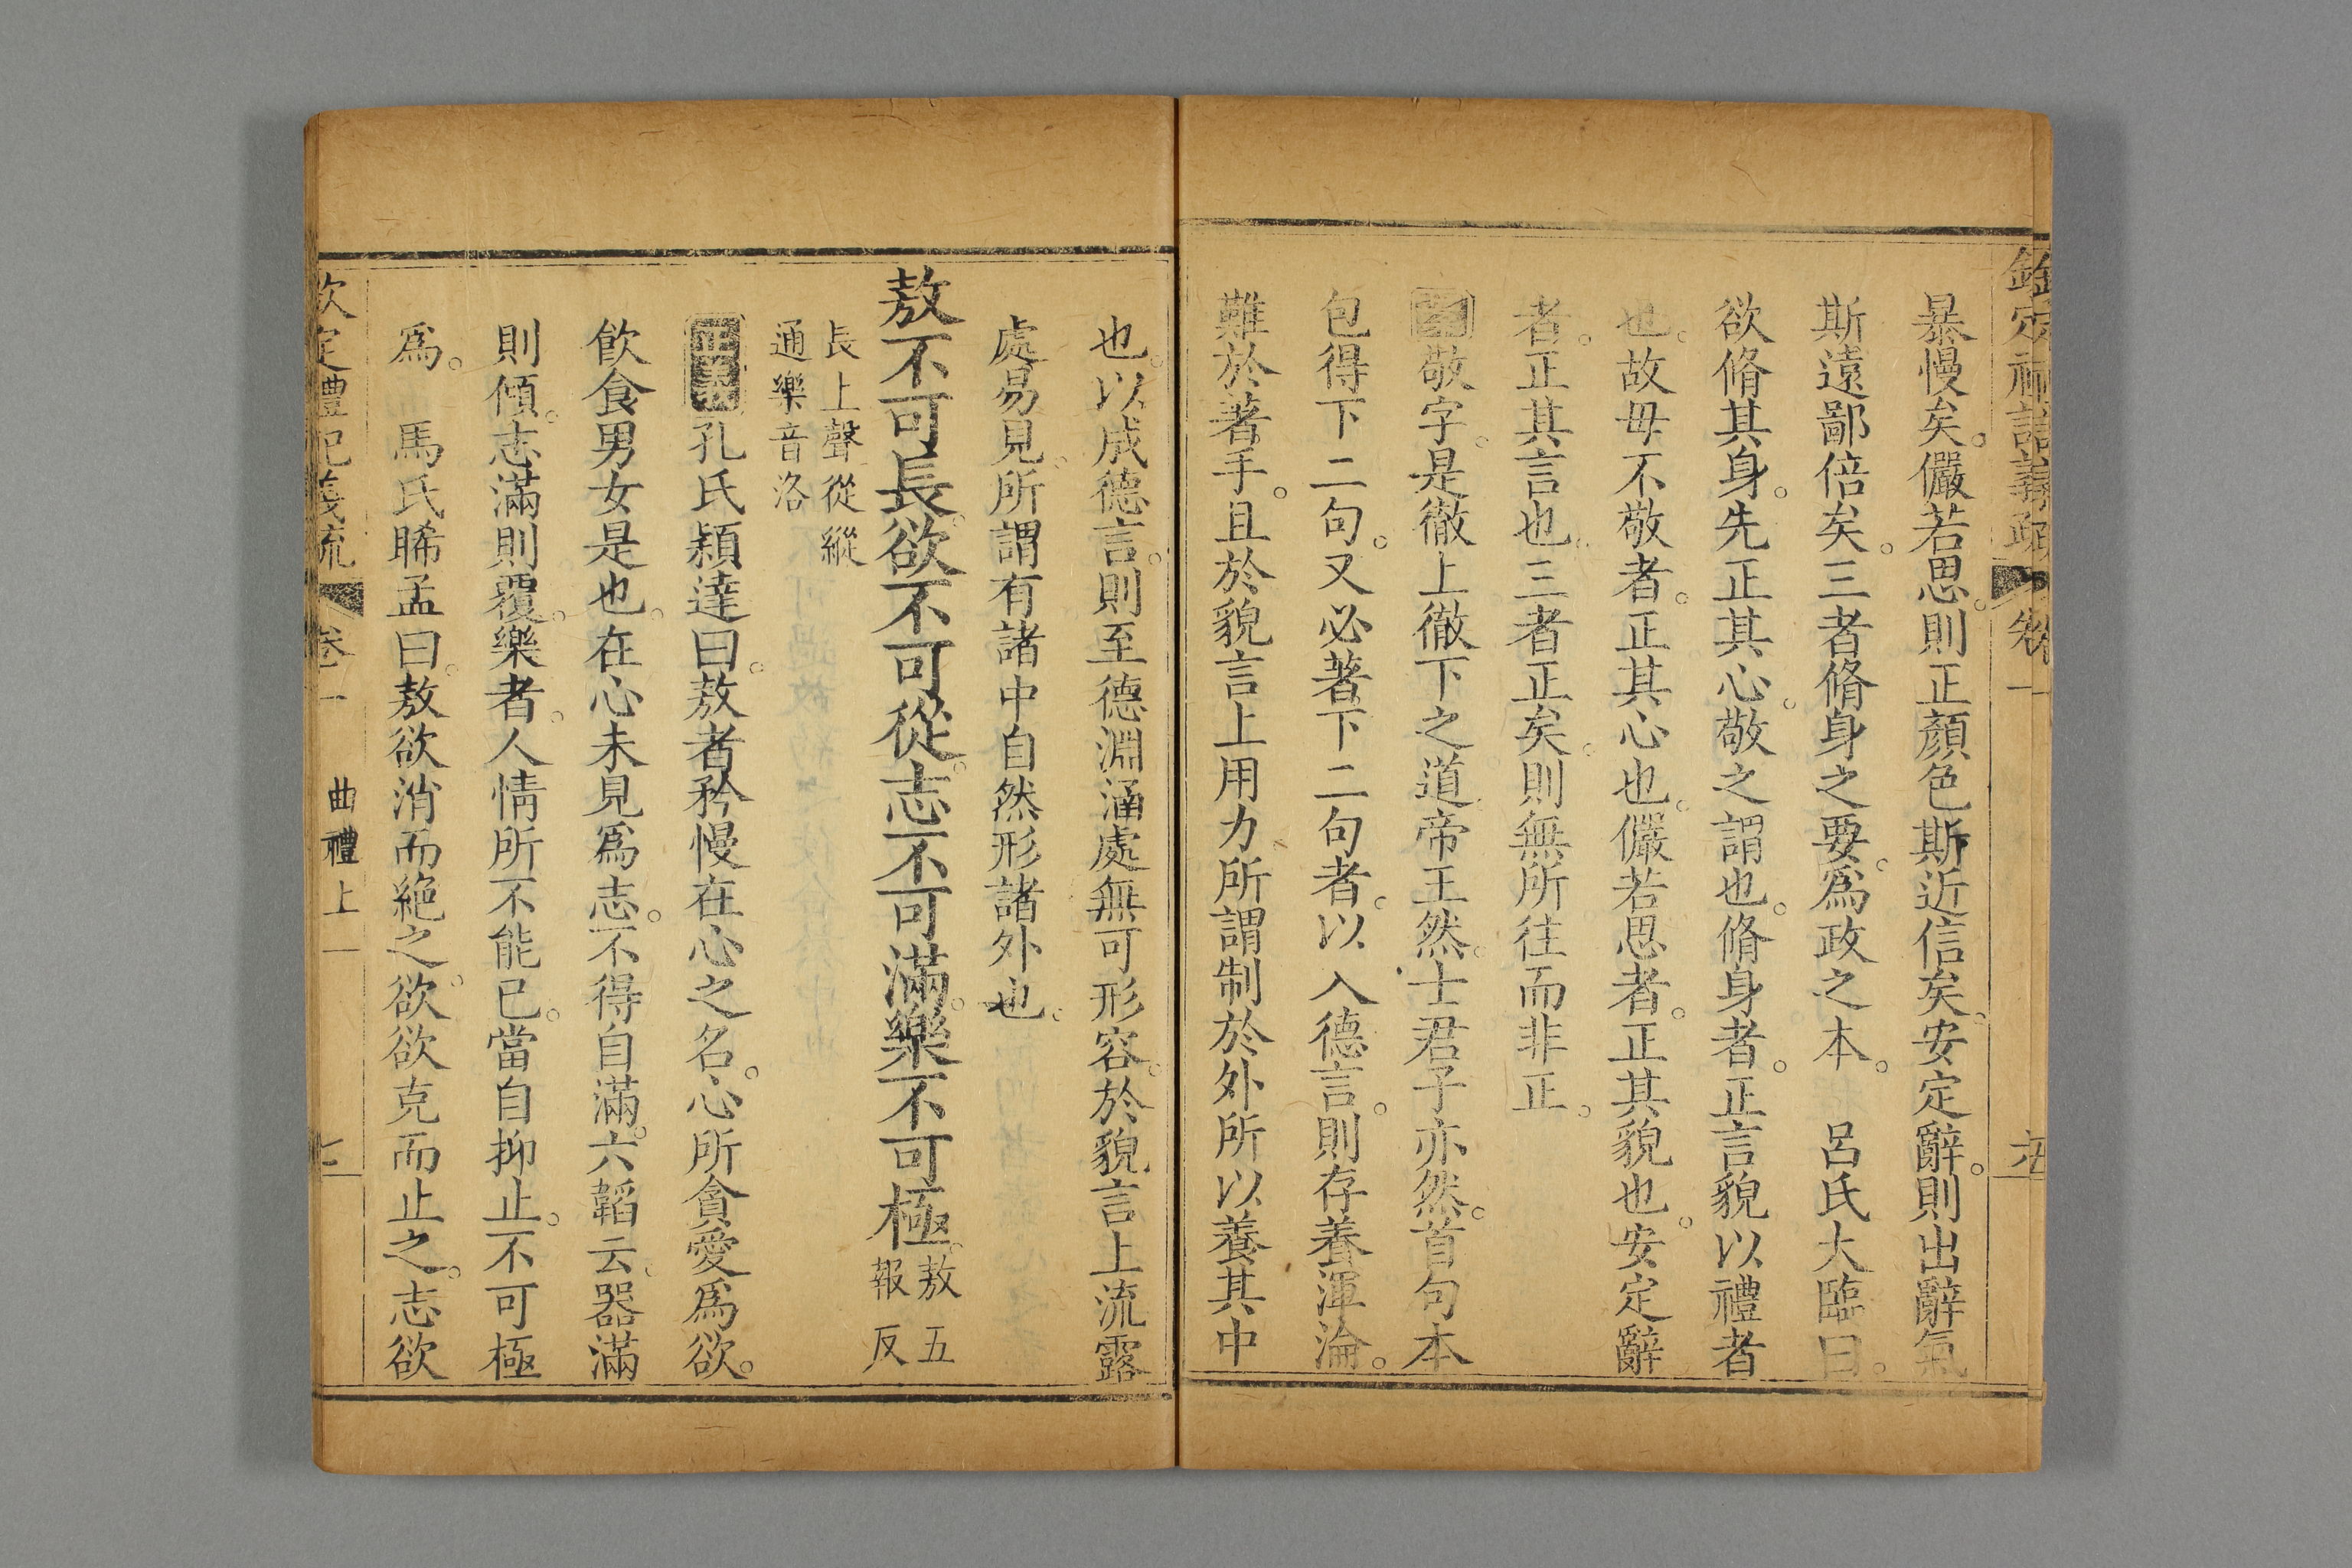 欽定禮記義疏 卷一
暴慢矣。儼若思。則正顏色斯近信矣。安定辭。則出辭氣
斯遠鄙倍矣。三者脩身之要。爲政之本。 呂氏大臨曰。
欲脩其身。先正其心。敬之謂也。脩身者。正言貌以禮者
也。故毋不敬者。正其心也。儼若思者。正其貌也。安定辭
者。正其言也。三者正矣。則無所往而非正。
案敬字。是徹上徹下之道。帝王然。士君子亦然。首句本
包得下二句。又必著下二句者。以入德言。則存養渾淪。
難於著手。且於貌言上用力。所謂制於外所以養其中
也。以成德言。則至德淵涵處無可形容。於貌言上流露
處易見。所謂有諸中自然形諸外也。
敖不可長。欲不可從。志不可滿。樂不可極。敖五報反
長上聲從縱
通樂音洛
正義孔氏穎達曰。敖者矜慢在心之名。心所貪愛爲欲。
飲食男女是也。在心未見爲志。不得自滿。六韜云。器滿
則傾。志滿則覆。樂者。人情所不能已。當自抑止。不可極
爲。 馬氏睎孟曰。敖欲消而絕之。欲欲克而止之。志欲
欽定禮記義疏 卷一 曲禮上 七